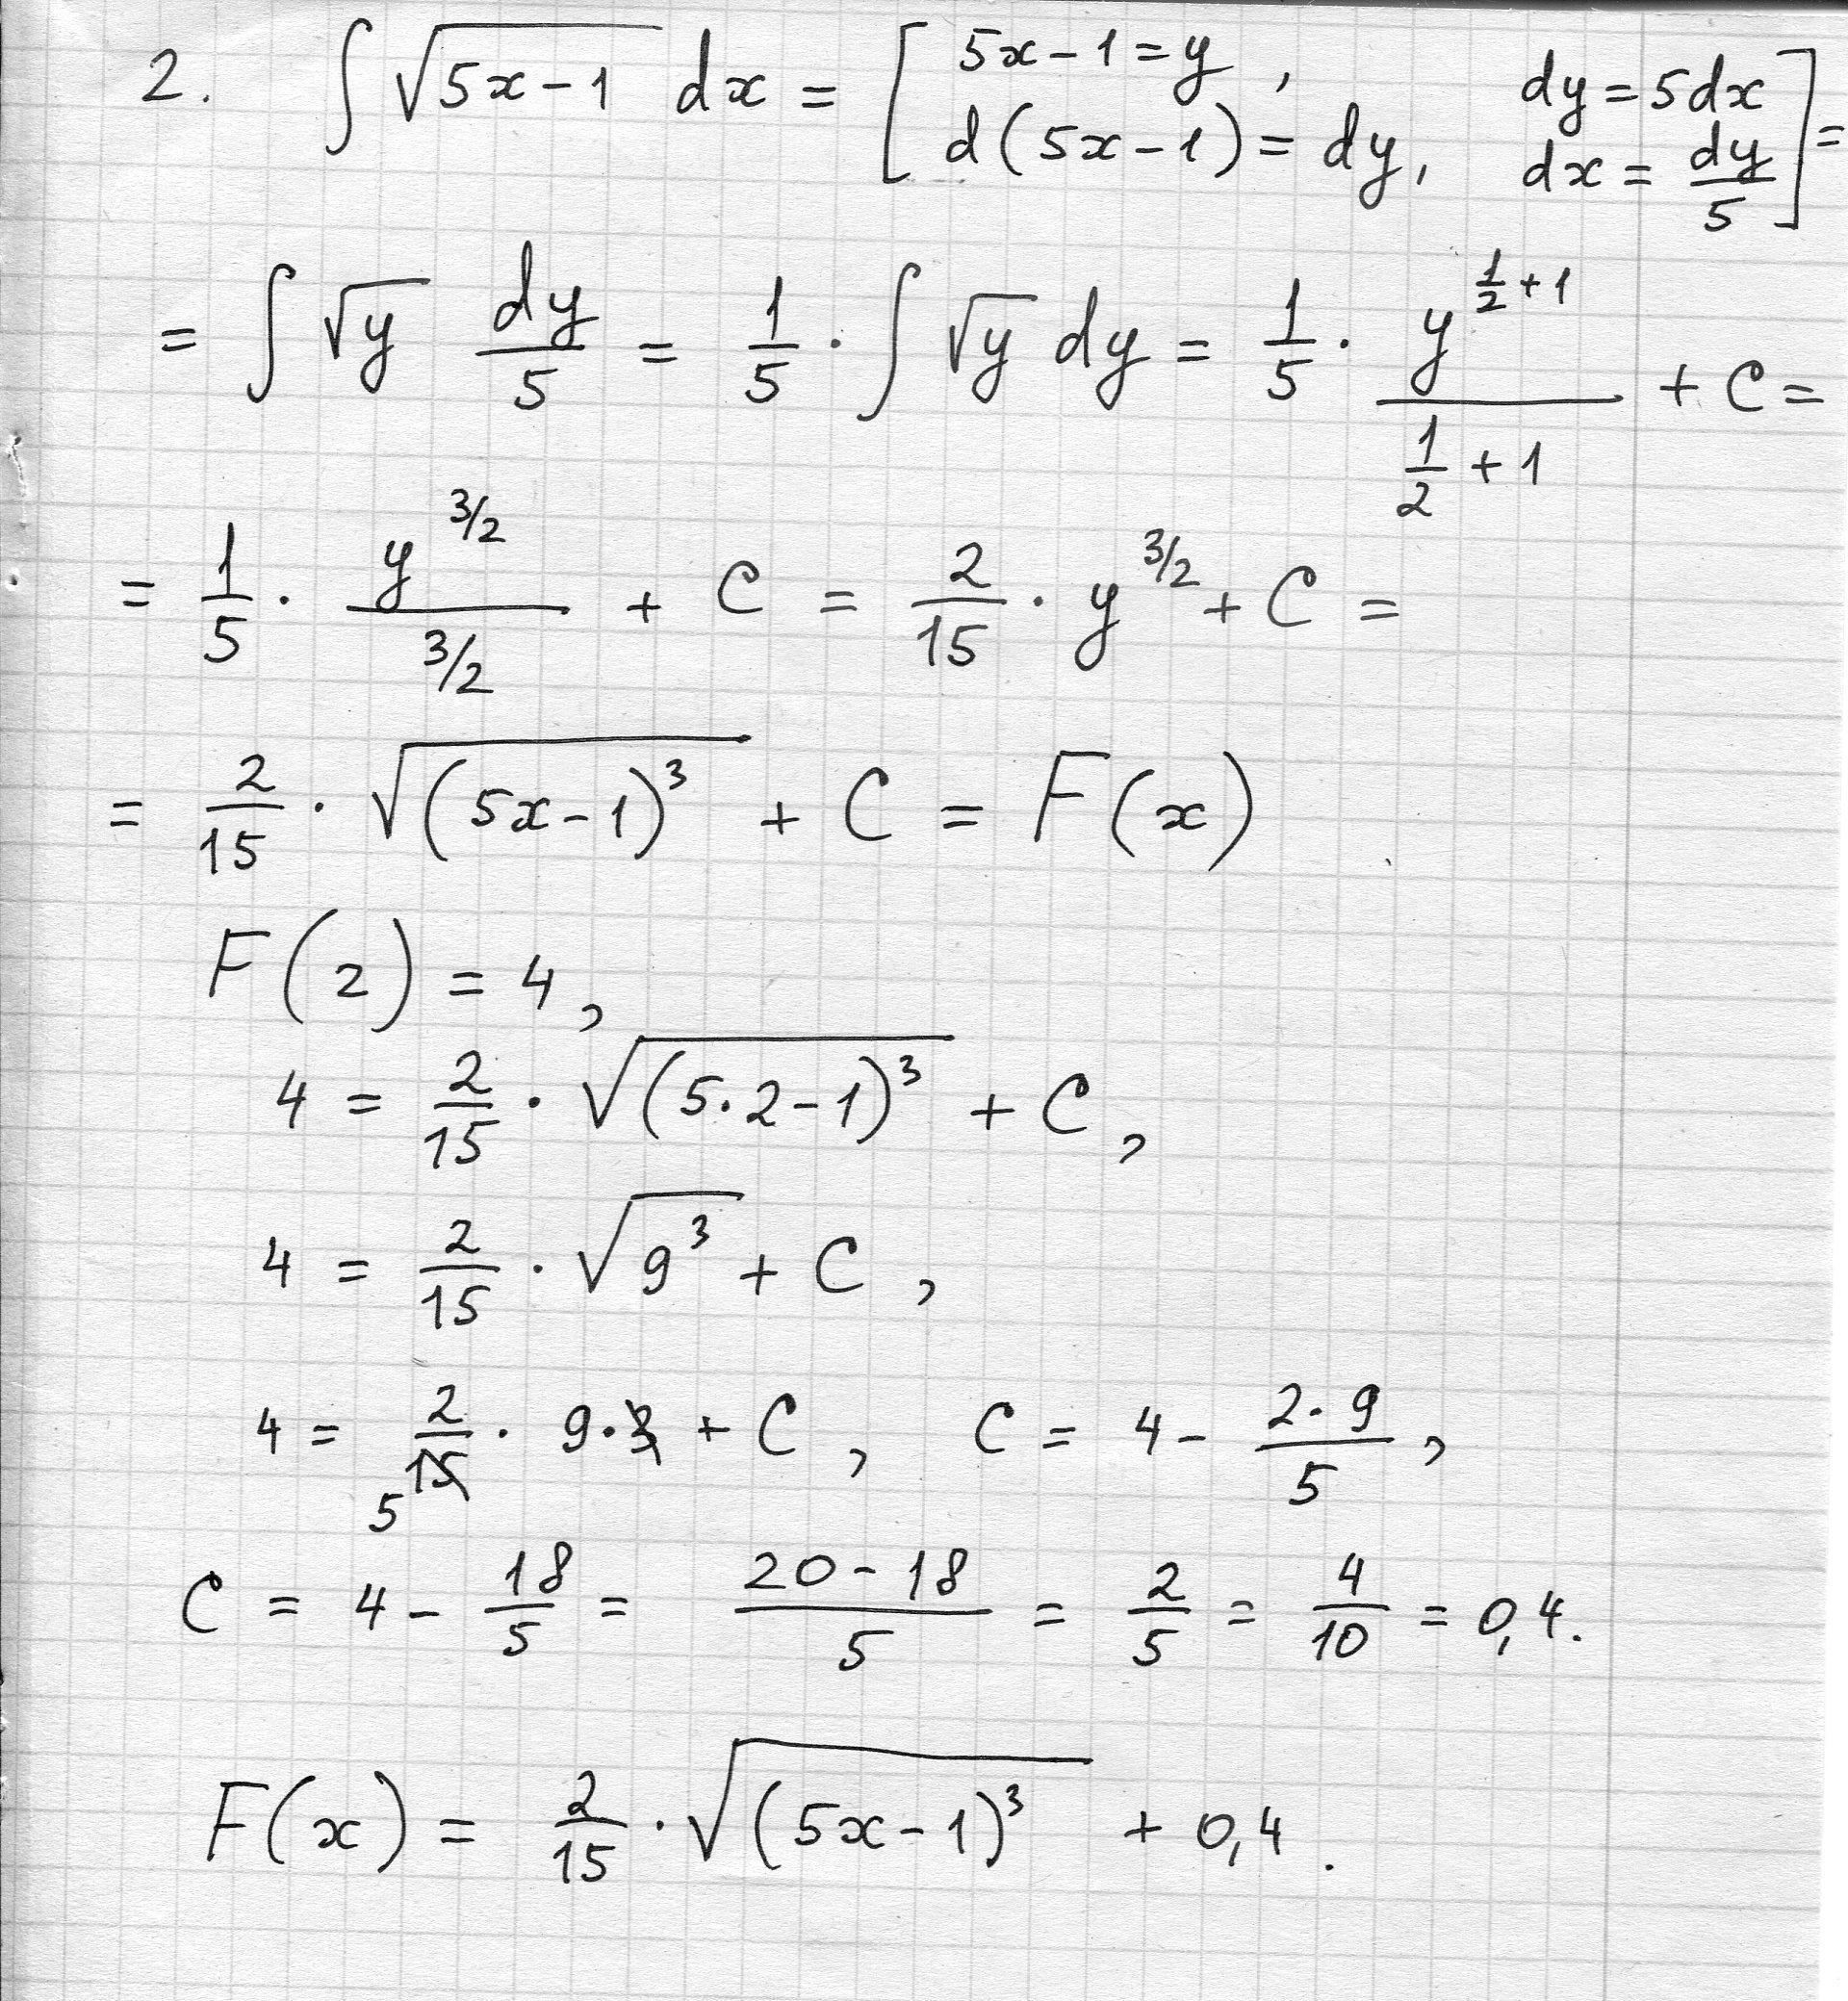 2. ∫ √(5x-1) dx = [ 5x-1=y, dy=5dx
d(5x-1)=dy, dx=dy/5 ] =
= ∫ √y dy/5 = 1/5 · ∫ √y dy = 1/5 · y^(1/2+1)/(1/2+1) + C =
= 1/5 · y^(3/2)/(3/2) + C = 2/15 · y^(3/2) + C =
= 2/15 · √((5x-1)³) + C = F(x)
F(2) = 4,
4 = 2/15 · √((5·2-1)³) + C,
4 = 2/15 · √(9³) + C,
4 = 2/15 · 9·3 + C, C = 4 - 2·9/5,
5
C = 4 - 18/5 = (20-18)/5 = 2/5 = 4/10 = 0,4.
F(x) = 2/15 · √((5x-1)³) + 0,4.